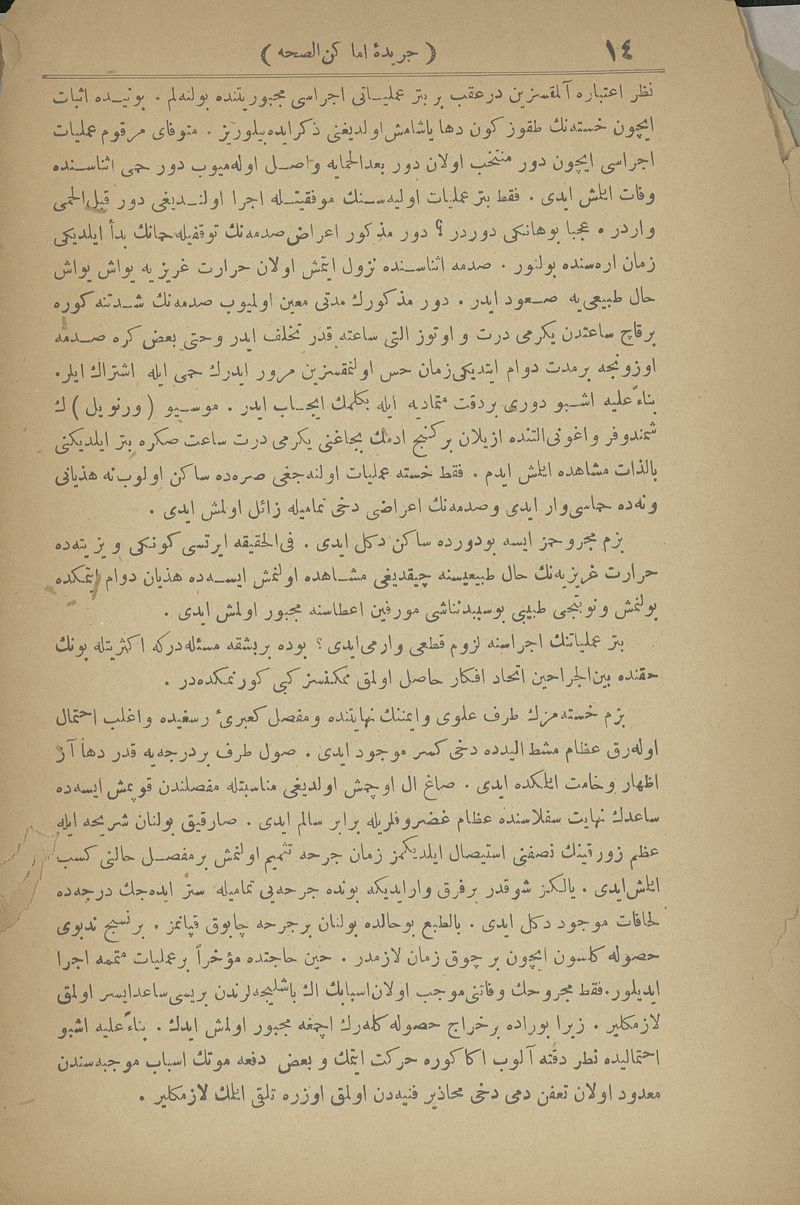 ١٤
( جریدهٔ اماكن الصحه )
نظر اعتباره آلمقسزین در عقب بر بتر عملیاتی اجراسی مجبوریتنده بولنه لم . بونیده اثبات
ایچون خسته نك طقوز كون دها یاشامش اولدیغنی ذكر ایده بیلوریز . متوفای مرقوم عملیات
اجراسی ایچون دور منتخب اولان دور بعد الحمایه واصل اوله میوب دور حمی اثناسنده
وفات ایلمش ایدی . فقط بتر عملیات اولیه سنك موفقیتله اجرا اولندیغی دور قبل الحمی
واردر . عجبا بو هانكی دوردر ؟ دور مذكور اعراض صدمه نك توقفیله حمانك بدأ ایلدیكی
زمان اره سنده بولنور . صدمه اثناسنده نزول ایتمش اولان حرارت غریزیه یواش یواش
حال طبیعی یه صعود ایدر . دور مذكورك مدتی معین اولمیوب صدمه نك شدتنه كوره
برقاچ ساعتدن یكرمی درت و اوتوز التی ساعته قدر تخلف ایدر وحتی بعض كره صدمه
اوزونجه بر مدت دوام ایتدیكی زمان حس اولنمقسزین مرور ایدرك حمی ایله اشتراك ایلر.
بناءً علیه اشبو دوری بر دقت متمادیه ایله بكلمك ایجاب ایدر . موسیو ( ورنویل ) ك
شمندوفر واغونی التنده ازیلان بر كنج ادمك بجاغنی یكرمی درت ساعت صكره بتر ایلدیكنی
بالذات مشاهده ایلمش ایدم . فقط خسته عملیات اولنه جغی صره ده ساكن اولوب نه هذیانی
ونه ده حماسی وار ایدی وصدمه نك اعراضی دخی تمامیله زائل اولمش ایدی .
بزم مجروحمز ایسه بو دورده ساكن دكل ایدی . فی الحقیقه ایرتسی كونكی ویزیته ده
حرارت غریزیه نك حال طبیعیسنه چیقدیغی مشاهده اولنمش ایسه ده هذیان دوام ایتمكده
بولنمش ونوبتجی طبیبی بوسببدن ناشی مورفین اعطاسنه مجبور اولمش ایدی .
بتر عملیاتنك اجراسنه لزوم قطعی وارمی ایدی ؟ بوده بر بشقه مسئله دركه اكثریتله بونك
حقنده بین الجراحین اتحاد افكار حاصل اولمق ممكنسز كبی كورنمكده در .
بزم خسته مزك طرف علوی وایمننك نهایتنده ومفصل كعبریٔ رسغیده واغلب احتمال
اوله رق عظام مشط الیدده دخی كسر موجود ایدی . صول طرف بر درجه یه قدر دها آز
اظهار وخامت ایلمكده ایدی . صاغ ال اوچمش اولدیغی مناسبتله مفصلندن قوپمش ایسه ده
ساعدك نهایت سفلاسنده عظام غضروفلریله برابر سالم ایدی . صارقیق بولنان شریحه ایله
عظم زورقینك نصفنی استیصال ایلدیكمز زمان جرحه تتمیم اولنمش بر مفصل حالنی كسب
ایلمش ایدی . یالكز شو قدر بر فرق وار ایدیكه بونده جرحه یی تمامیله ستر ایده جك درجه ده
لحافات موجود دكل ایدی . بالطبع بو حالده بولنان بر جرحه چابوق قپانمز . بر نسج ندبوی
حصوله كلسون ایچون بر چوق زمان لازمدر . حین حاجتده مؤخراً بر عملیات متممه اجرا
ایدیلور. فقط مجروحك وفاتنی موجب اولان اسبابك اك باشلیجه لرندن بریسی ساعد ایسر اولمق
لازمكلیر . زیرا بوراده بر خراج حصوله كله رك اچمغه مجبور اولمش ایدك . بناءً علیه اشبو
احتمالیده نظر دقته آلوب اكا كوره حركت ایتمك و بعض دفعه موتك اسباب موجبه سندن
معدود اولان تعفن دمی دخی محاذیر فنیه دن اولمق اوزره تلقی ایلمك لازمكلیر .